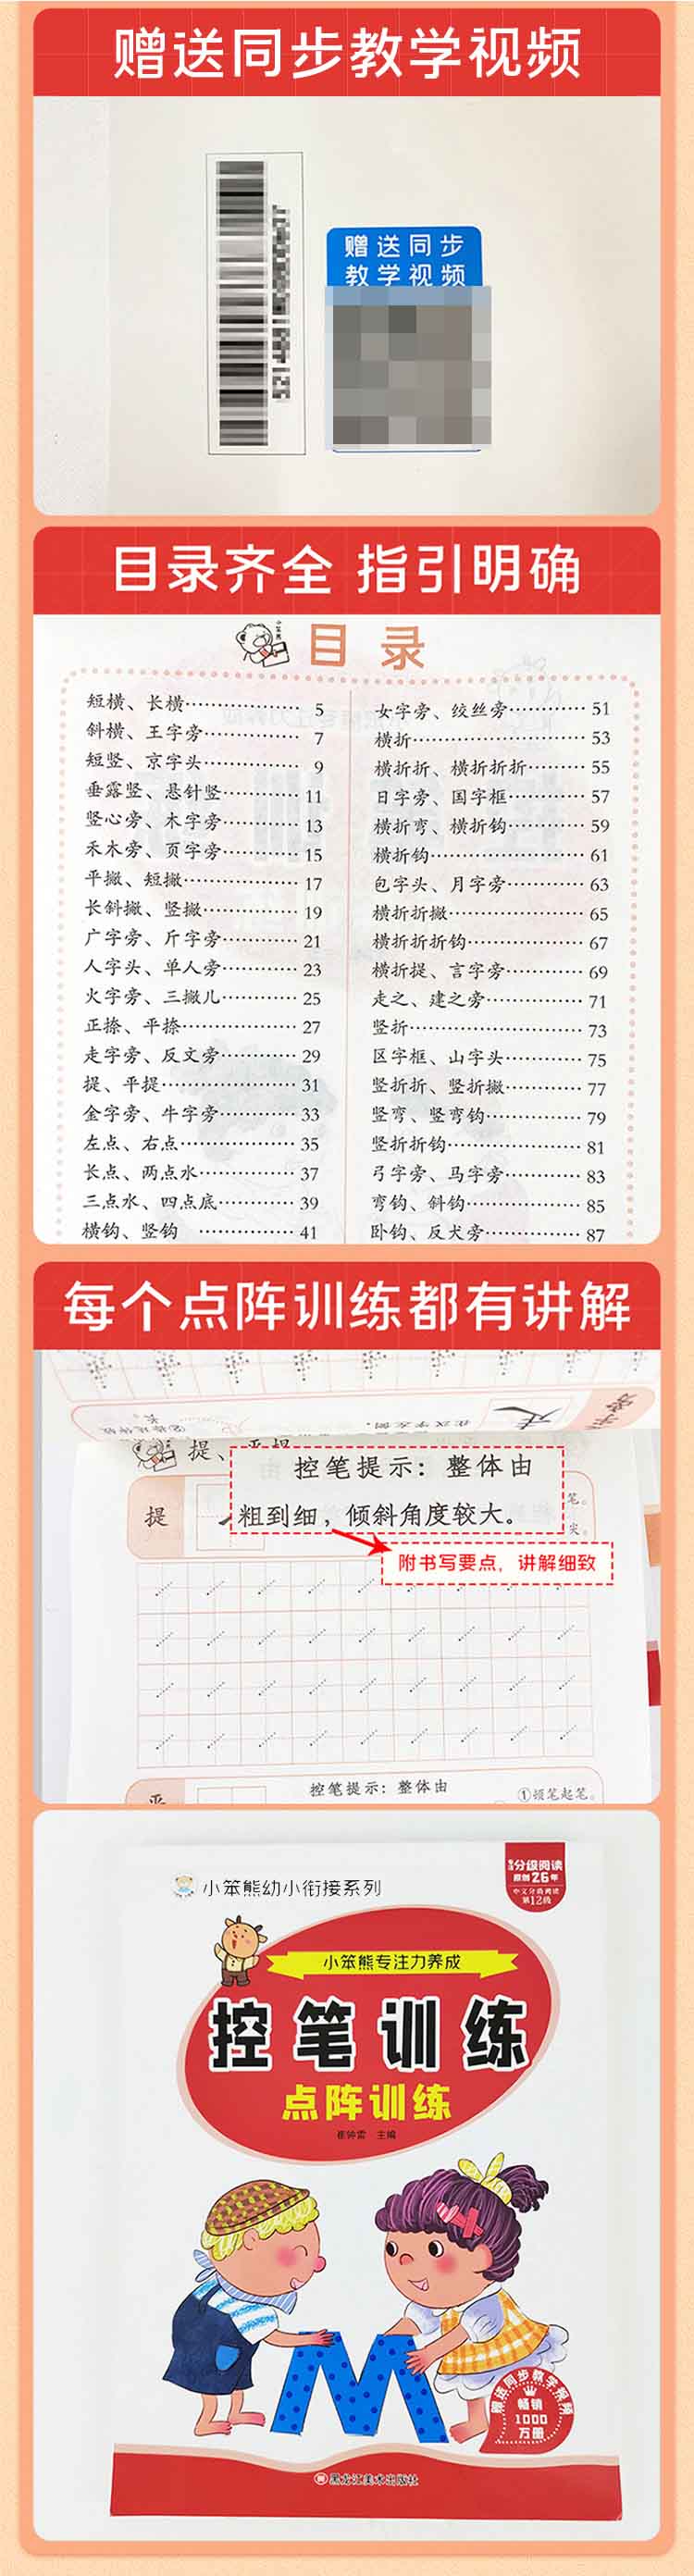 赠送同步教学视频
赠送同步
教学视频
目录齐全 指引明确
目录
短横、长横………………5
斜横、王字旁………………7
短竖、京字头………………9
垂露竖、悬针竖………………11
竖心旁、木字旁………………13
禾木旁、页字旁………………15
平撇、短撇………………17
长斜撇、竖撇………………19
广字旁、斤字旁………………21
人字头、单人旁………………23
火字旁、三撇儿………………25
正捺、平捺………………27
走字旁、反文旁………………29
提、平提………………31
金字旁、牛字旁………………33
左点、右点………………35
长点、两点水………………37
三点水、四点底………………39
横钩、竖钩………………41
女字旁、绞丝旁………………51
横折………………53
横折折、横折折折………………55
日字旁、国字框………………57
横折弯、横折钩………………59
横折钩………………61
包字头、月字旁………………63
横折折撇………………65
横折折折钩………………67
横折提、言字旁………………69
走之、建之旁………………71
竖折………………73
区字框、山字头………………75
竖折折、竖折撇………………77
竖弯、竖弯钩………………79
竖折折钩………………81
弓字旁、马字旁………………83
弯钩、斜钩………………85
卧钩、反犬旁………………87
每个点阵训练都有讲解
提、平提
控笔提示：整体由
粗到细，倾斜角度较大。
提
笔。
尖。
附书写要点，讲解细致
控笔提示：整体由
①顿笔起笔。
小笨熊幼小衔接系列
分级阅读
原创26年
中文分级阅读
第12级
小笨熊专注力养成
控笔训练
点阵训练
崔钟雷 主编
赠送同步教学视频
畅销
1000
万册
黑龙江美术出版社